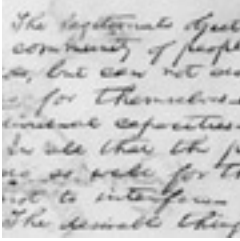 The legitimate object
community of people
do, but can not
for themselves
individual capacities
In all that the p
as well for th
not to interfere
The desirable thing